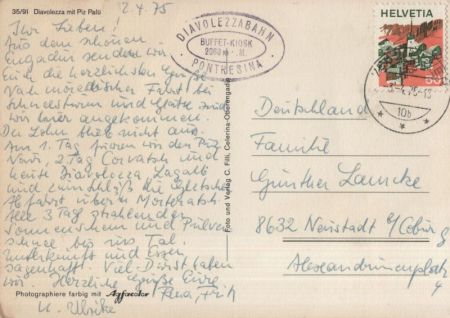 35/91 Diavolezza mit Piz Palü
2.4.75
Ihr Lieben!
Aus dem schönen
Engadin senden wir
Euch die herzlichsten Grüße
Nach mörderischer Fahrt bei
Schneesturm und Glätte sind
wir hier angekommen.
Der Lohn blieb nicht aus.
Am 1. Tag fuhren wir den Piz
Nair, 2. Tag Corvatsch und
heute Diavolezza Lagalb
und zum Schluß die Gletscher
Abfahrt über Morteratsch.
Alle 3 Tag strahlender
Sonnenschein und Pulver
schnee bis ins Tal.
Unterkunft und Essen
sagenhaft. Viel Durst haben
wir. Herzliche Grüße Eure
u. Ulrike
Photographiere farbig mit Agfacolor
Foto und Verlag C. Filli, Celerina-Oberengadin
DIAVOLEZZABAHN
BUFFET-KIOSK
PONTRESINA
HELVETIA
Deutschland
Familie
Günther Lamcke
8632 Neustadt b/Coburg
Alexandrinenplatz
4